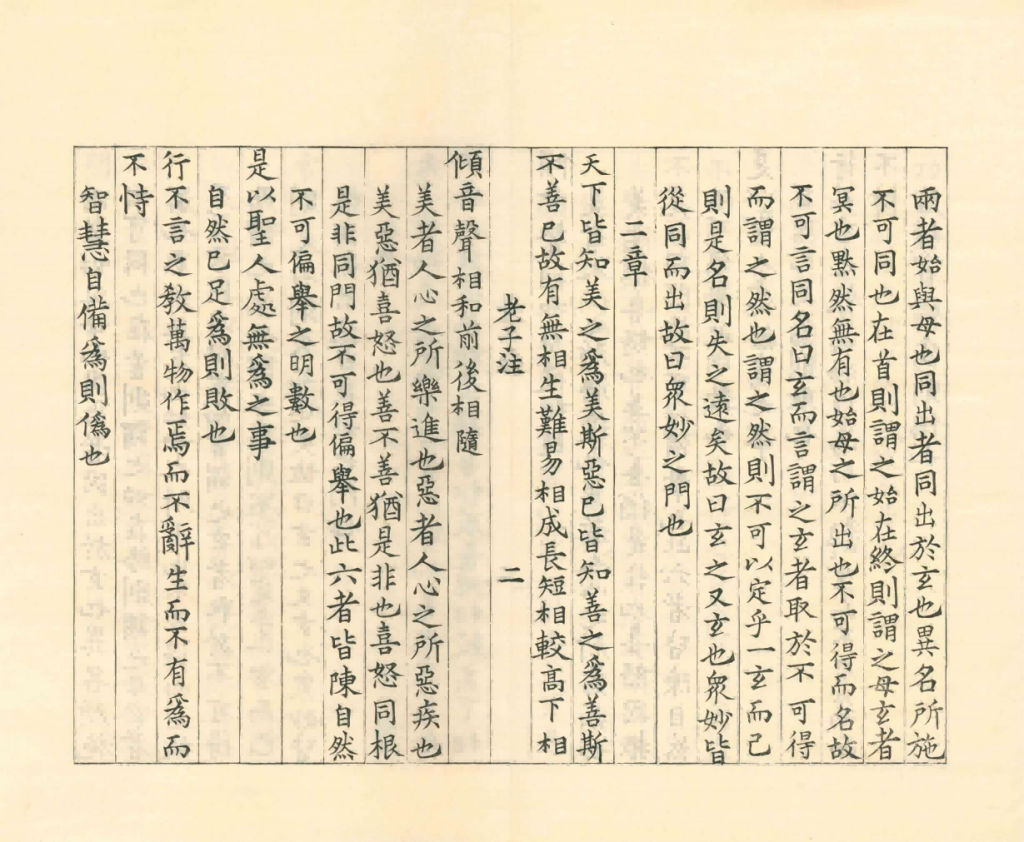 兩者始與母也同出者同出於玄也異名所施
不可同也在首則謂之始在終則謂之母玄者
冥也黙然無有也始母之所出也不可得而名故
不可言同名曰玄而言謂之玄者取於不可得
而謂之然也謂之然則不可以定乎一玄而已
則是名則失之遠矣故曰玄之又玄也衆妙皆
從同而出故曰衆妙之門也
二章
天下皆知美之爲美斯惡已皆知善之爲善斯
不善已故有無相生難易相成長短相較高下相
老子注
二
傾音聲相和前後相隨
美者人心之所樂進也惡者人心之所惡疾也
美惡猶喜怒也善不善猶是非也喜怒同根
是非同門故不可得偏舉也此六者皆陳自然
不可偏舉之明數也
是以聖人處無爲之事
自然已足爲則敗也
行不言之教萬物作焉而不辭生而不有爲而
不恃
智慧自備爲則僞也